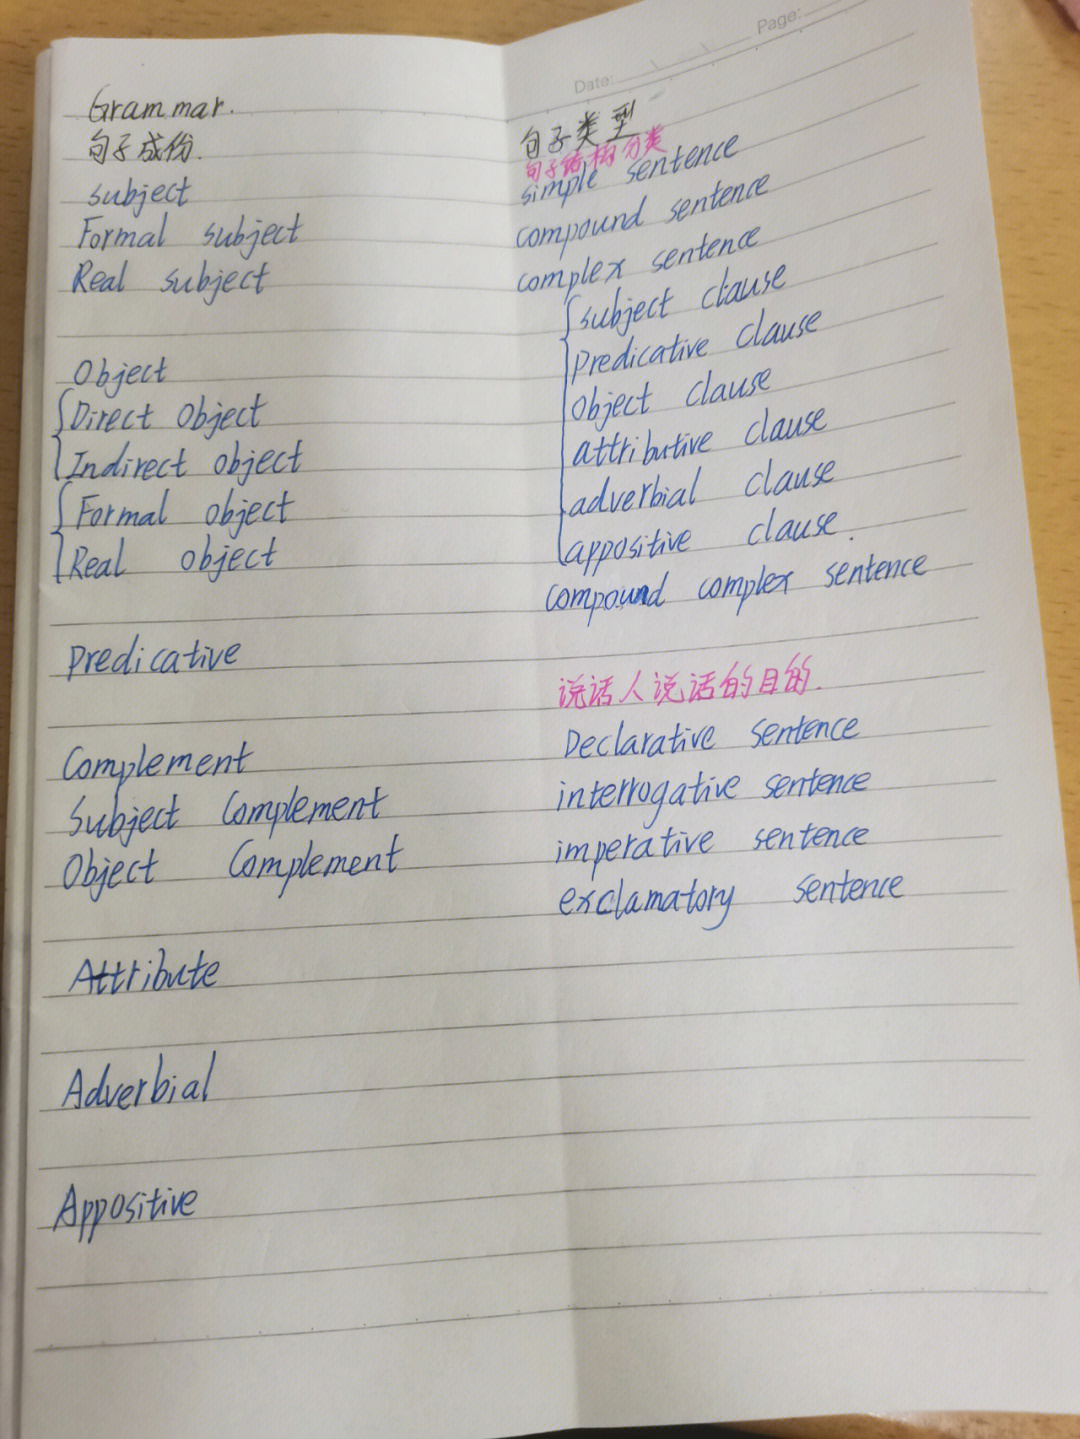 Grammar.
句子成份.
subject
Formal subject
Real subject
Object
Direct Object
Indirect object
Formal object
Real object
Predicative
Complement
Subject Complement
Object Complement
Attribute
Adverbial
Appositive
Date:
Page:
句子类型
句子结构分类
simple sentence
compound sentence
complex sentence
subject clause
Predicative clause
Object clause
attributive clause
adverbial clause
appositive clause.
compound complex sentence
说话人说话的目的.
Declarative sentence
interrogative sentence
imperative sentence
exclamatory sentence